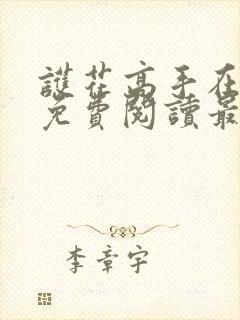 護花高手在
免費閱讀最
李章宇